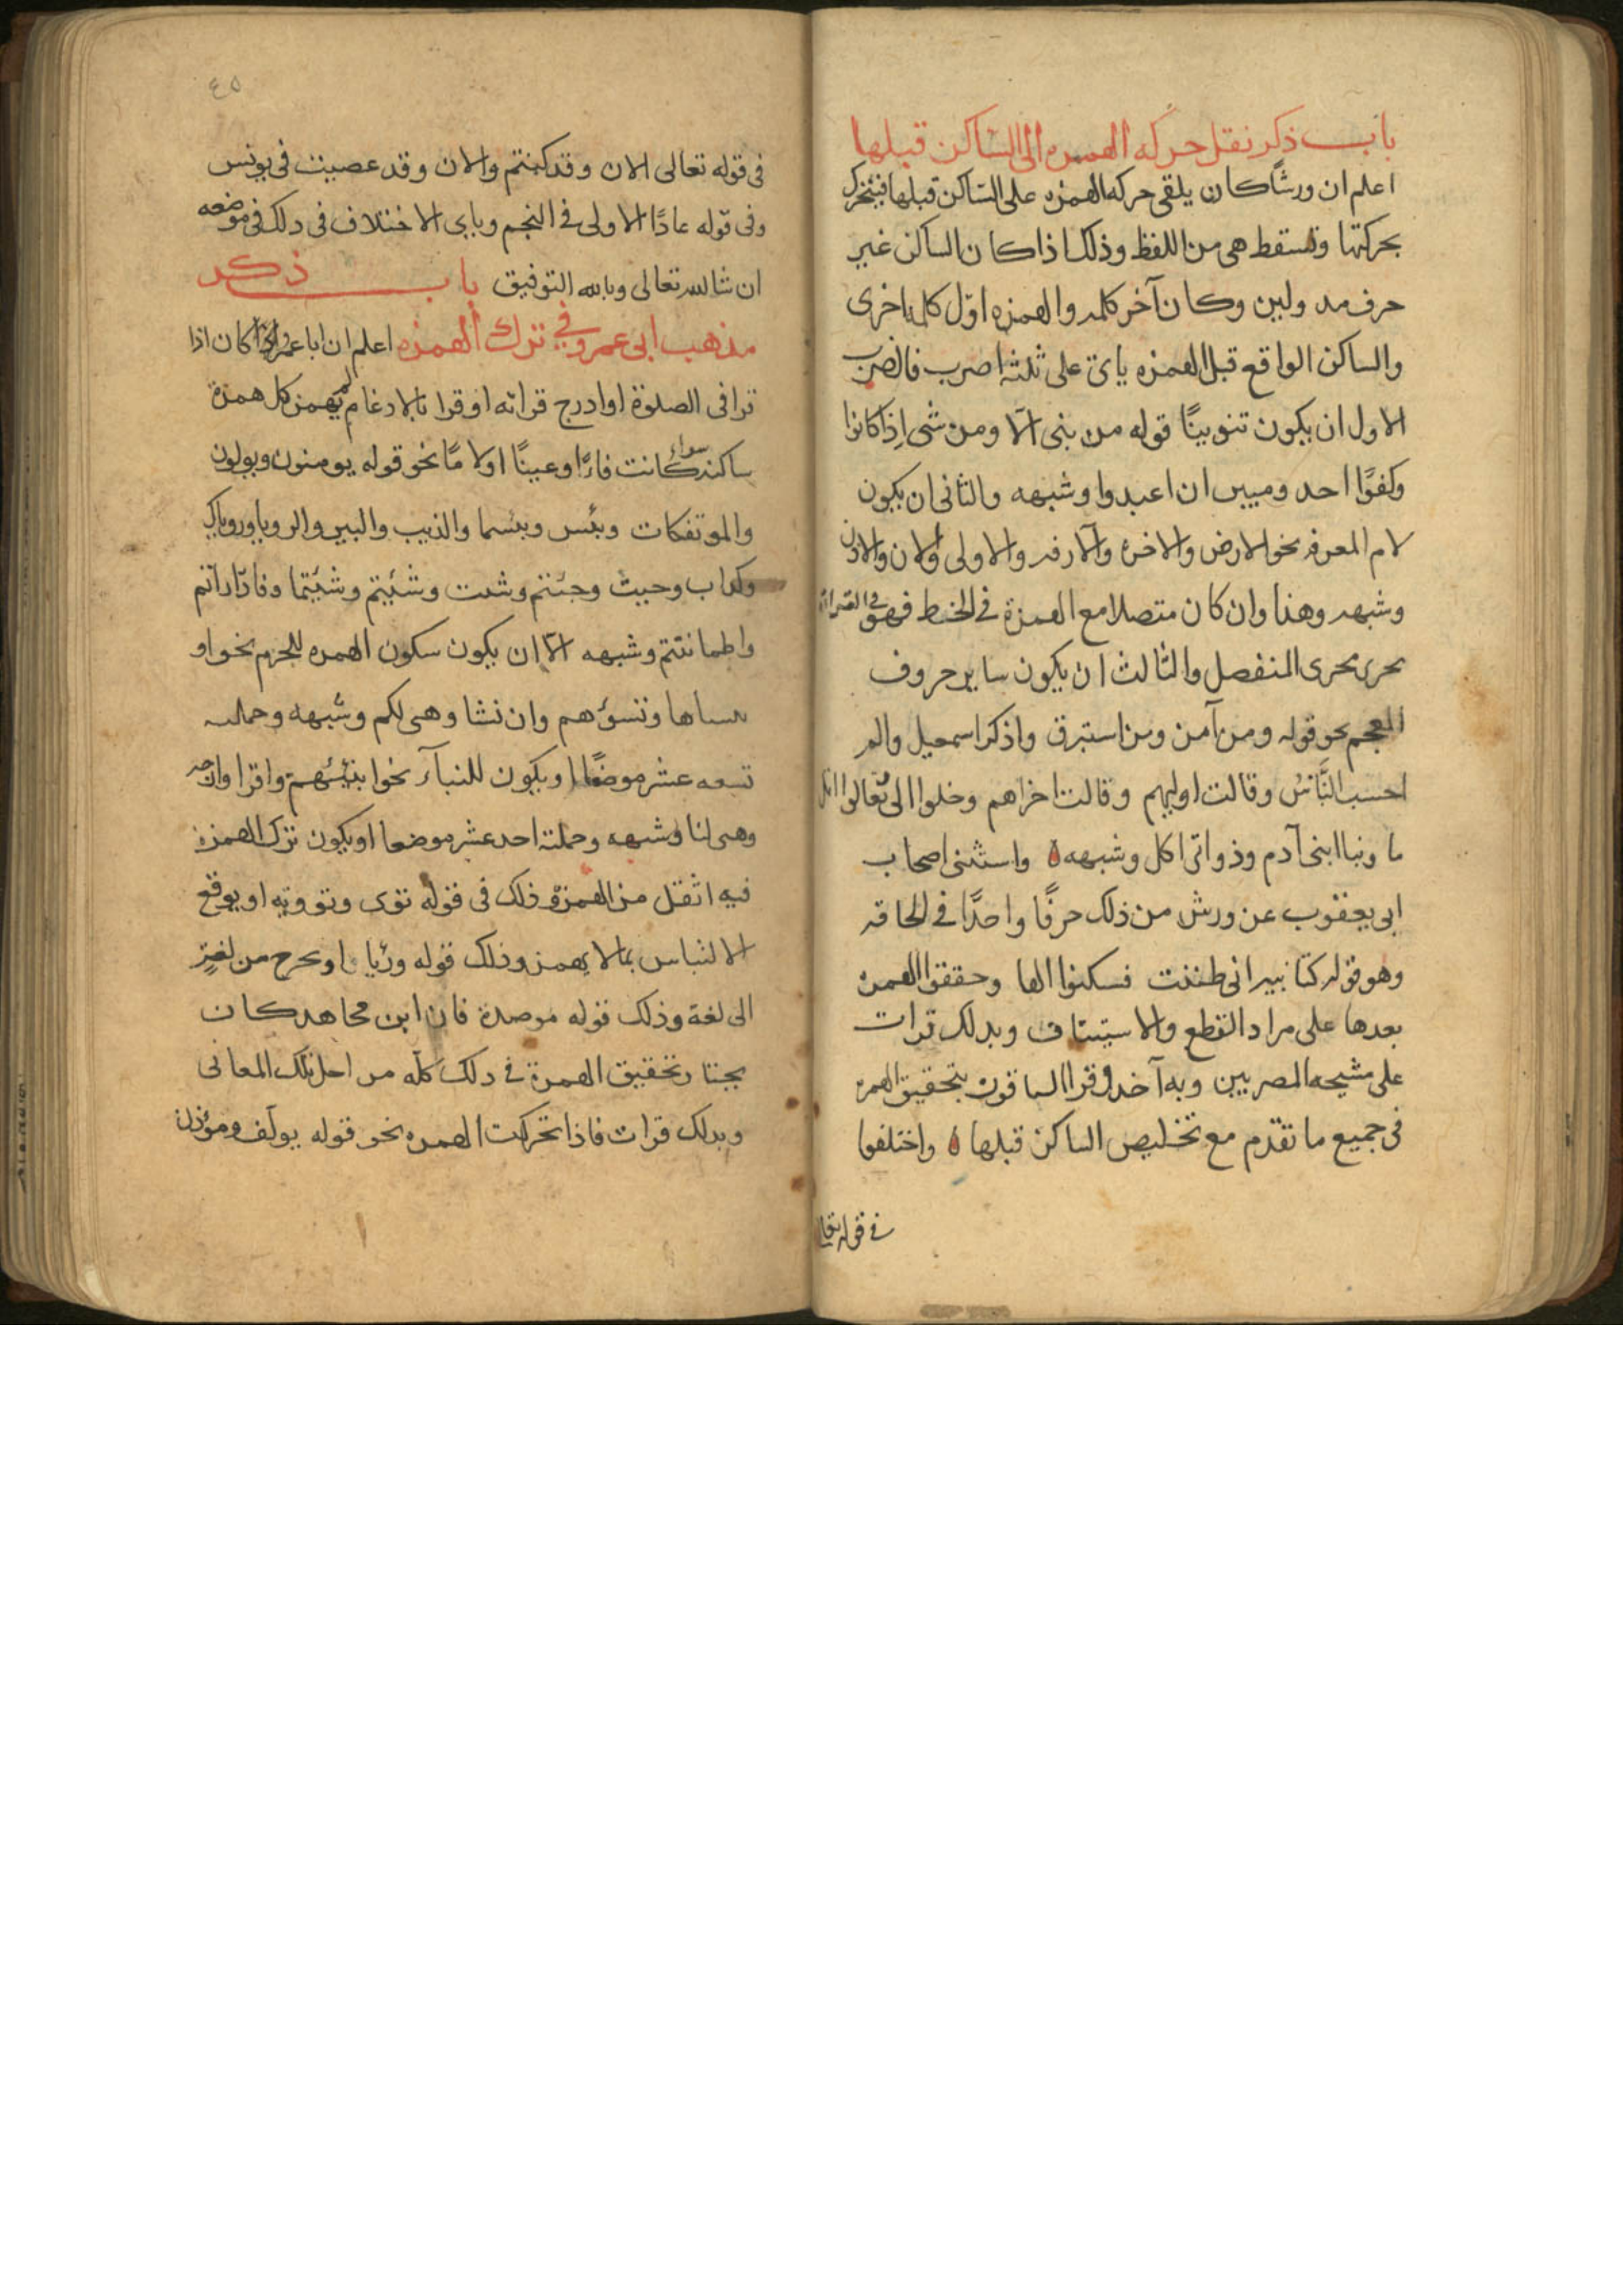 باب ذكر نقل حركه الهمزه الى الساكن قبلها
اعلم ان ورشًا كان يلقى حركه الهمزه على الساكن قبلها فيتحرك
بحركتها وتسقط هى من اللفظ وذلك اذا كان الساكن غير
حرف مد ولين وكان آخر كلمه والهمزه اوّل كلمة اخرى
والساكن الواقع قبل الهمزه ياتى على ثلثه اضرب فالضرب
الاول ان يكون تنوينًا قوله من نبى الّا ومن شى اِذ كانوا
وكفوًا احد ومبين ان اعبدوا وشبهه والثانى ان يكون
لام المعرفه نحو الارض والاخره والآزفه والاولى والان والاذن
وشبهه وهذا وان كان متصلا مع الهمزة فى الخط فهو فى القراة
يجرى مجرى المنفصل والثالث ان يكون ساير حروف
المعجم نحو قوله ومن آمن ومن استبرق واذكر اسمعيل والم
احسب النَّاسُ وقالت اوليهم وقالت اخراهم وخلوا الى وتعالوا اتل
ما ونبا ابنى آدم وذواتى اكل وشبهه ه واستثنى اصحاب
ابى يعقوب عن ورش من ذلك حرفًا واحدًا فى الحاقه
وهو قوله كتابيه انى ظننت فسكنوا الها وحققوا الهمزه
بعدها على مراد القطع والاستيناف وبذلك قرات
على مشيخه المصريين وبه آخذ وقرا الباقون بتحقيق الهمزه
فى جميع ما تقدم مع تخليص الساكن قبلها ه واختلفوا
فى قوله تعالى
٤٥
فى قوله تعالى الان وقد كنتم والان وقد عصيت فى يونس
وفى قوله عادًا الاولى فى النجم وياتى الاختلاف فى ذلك فى موضعه
ان شا لله تعالى وبالله التوفيق باب ذكر
مذهب ابى عمرو فى ترك الهمزه اعلم ان ابا عمرو كان اذا
قرا فى الصلوة او ادرج قراته او قرا بالادغام لم يهمز كل همزة
ساكنه سواء كانت فاءً او عينًا او لامًا نحو قوله يومنون ويولون
والموتفكات وبئس وبئسما والذيب والبير والرويا ورؤياك
وكداب وجيت وجئتم وشئت وشئتم وشئتما وفاداراتم
واطماننتم وشبهه الّا ان يكون سكون الهمزه للجزم نحو او
ننساها وتسؤهم وان نشا وهى لكم وشبهه وجملته
تسعه عشر موضعًا او يكون للبنآء نحو انبئهم واقرا وارجه
وهى لنا وشبهه وجملته احد عشر موضعا او يكون ترك الهمزة
فيه اثقل من الهمزة وذلك فى قوله تؤى وتؤويه او يوقع
الالتباس بما لا يهمز وذلك قوله ورئيا او يخرج من لغةٍ
الى لغة وذلك قوله موصدة فان ابن مجاهد كان
يختار تحقيق الهمزة فى ذلك كلّه من اجل تلك المعانى
وبذلك قرات فاذا تحركت الهمزه نحو قوله يولّف ومؤذن